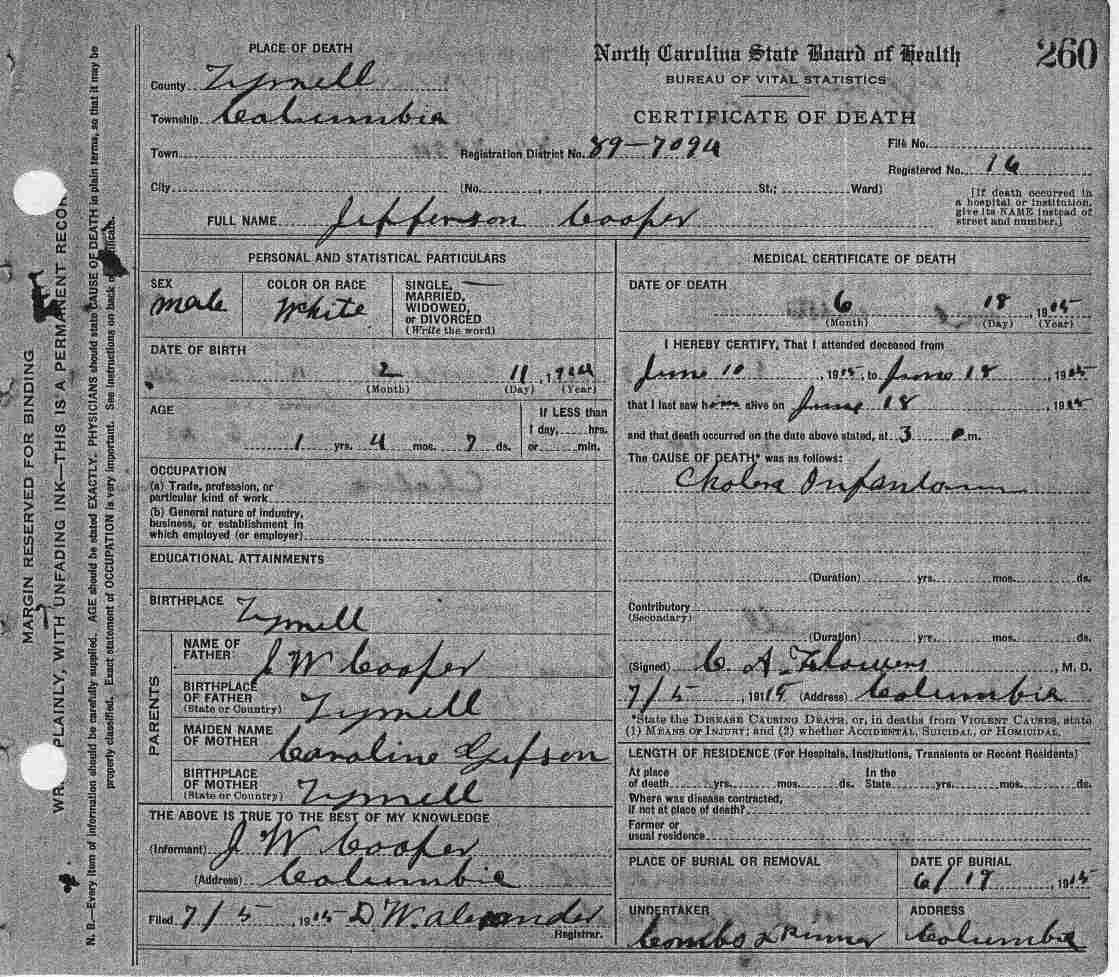 MARGIN RESERVED FOR BINDING
WR PLAINLY, WITH UNFADING INK—THIS IS A PERMANENT RECOR
N. B.—Every item of information should be carefully supplied. AGE should be stated EXACTLY. PHYSICIANS should state CAUSE OF DEATH in plain terms, so that it may be
properly classified. Exact statement of OCCUPATION is very important. See instructions on back of certificate.
260
North Carolina State Board of Health
BUREAU OF VITAL STATISTICS
CERTIFICATE OF DEATH
PLACE OF DEATH
County Tyrrell
Township Columbia
Town Registration District No. 89-7094
File No.
Registered No. 16
City (No. , St.; Ward)
[If death occurred in
a hospital or institution,
give its NAME instead of
street and number.]
FULL NAME Jefferson Cooper
PERSONAL AND STATISTICAL PARTICULARS
SEX
male
COLOR OR RACE
White
SINGLE,
MARRIED,
WIDOWED,
or DIVORCED
(Write the word)
DATE OF BIRTH
2 11, 1914
(Month) (Day) (Year)
AGE
1 yrs. 4 mos. 7 ds.
If LESS than
1 day, hrs.
or min.
OCCUPATION
(a) Trade, profession, or
particular kind of work
(b) General nature of industry,
business, or establishment in
which employed (or employer)
EDUCATIONAL ATTAINMENTS
BIRTHPLACE Tyrrell
PARENTS
NAME OF
FATHER J W Cooper
BIRTHPLACE
OF FATHER
(State or Country) Tyrrell
MAIDEN NAME
OF MOTHER Caroline
BIRTHPLACE
OF MOTHER
(State or Country) Tyrrell
THE ABOVE IS TRUE TO THE BEST OF MY KNOWLEDGE
(Informant) J W Cooper
(Address) Columbia
Filed 7/5 1915 D. W. Alexander
Registrar.
MEDICAL CERTIFICATE OF DEATH
DATE OF DEATH
6 18, 1915
(Month) (Day) (Year)
I HEREBY CERTIFY, That I attended deceased from
June 10, 1915, to June 18 1915
that I last saw him alive on June 18, 1915
and that death occurred on the date above stated, at 3 P.m.
The CAUSE OF DEATH* was as follows:
Cholera Infantum
(Duration) yrs. mos. ds.
Contributory
(Secondary)
(Duration) yrs. mos. ds.
(Signed) C. A. Flowers, M. D.
7/5, 1915 (Address) Columbia
*State the DISEASE CAUSING DEATH, or, in deaths from VIOLENT CAUSES, state
(1) MEANS OF INJURY; and (2) whether ACCIDENTAL, SUICIDAL, or HOMICIDAL.
LENGTH OF RESIDENCE (For Hospitals, Institutions, Transients or Recent Residents)
At place In the
of death yrs. mos. ds. State yrs. mos. ds.
Where was disease contracted,
if not at place of death?
Former or
usual residence
PLACE OF BURIAL OR REMOVAL
DATE OF BURIAL
6/19, 1915
UNDERTAKER
Combs &
ADDRESS
Columbia